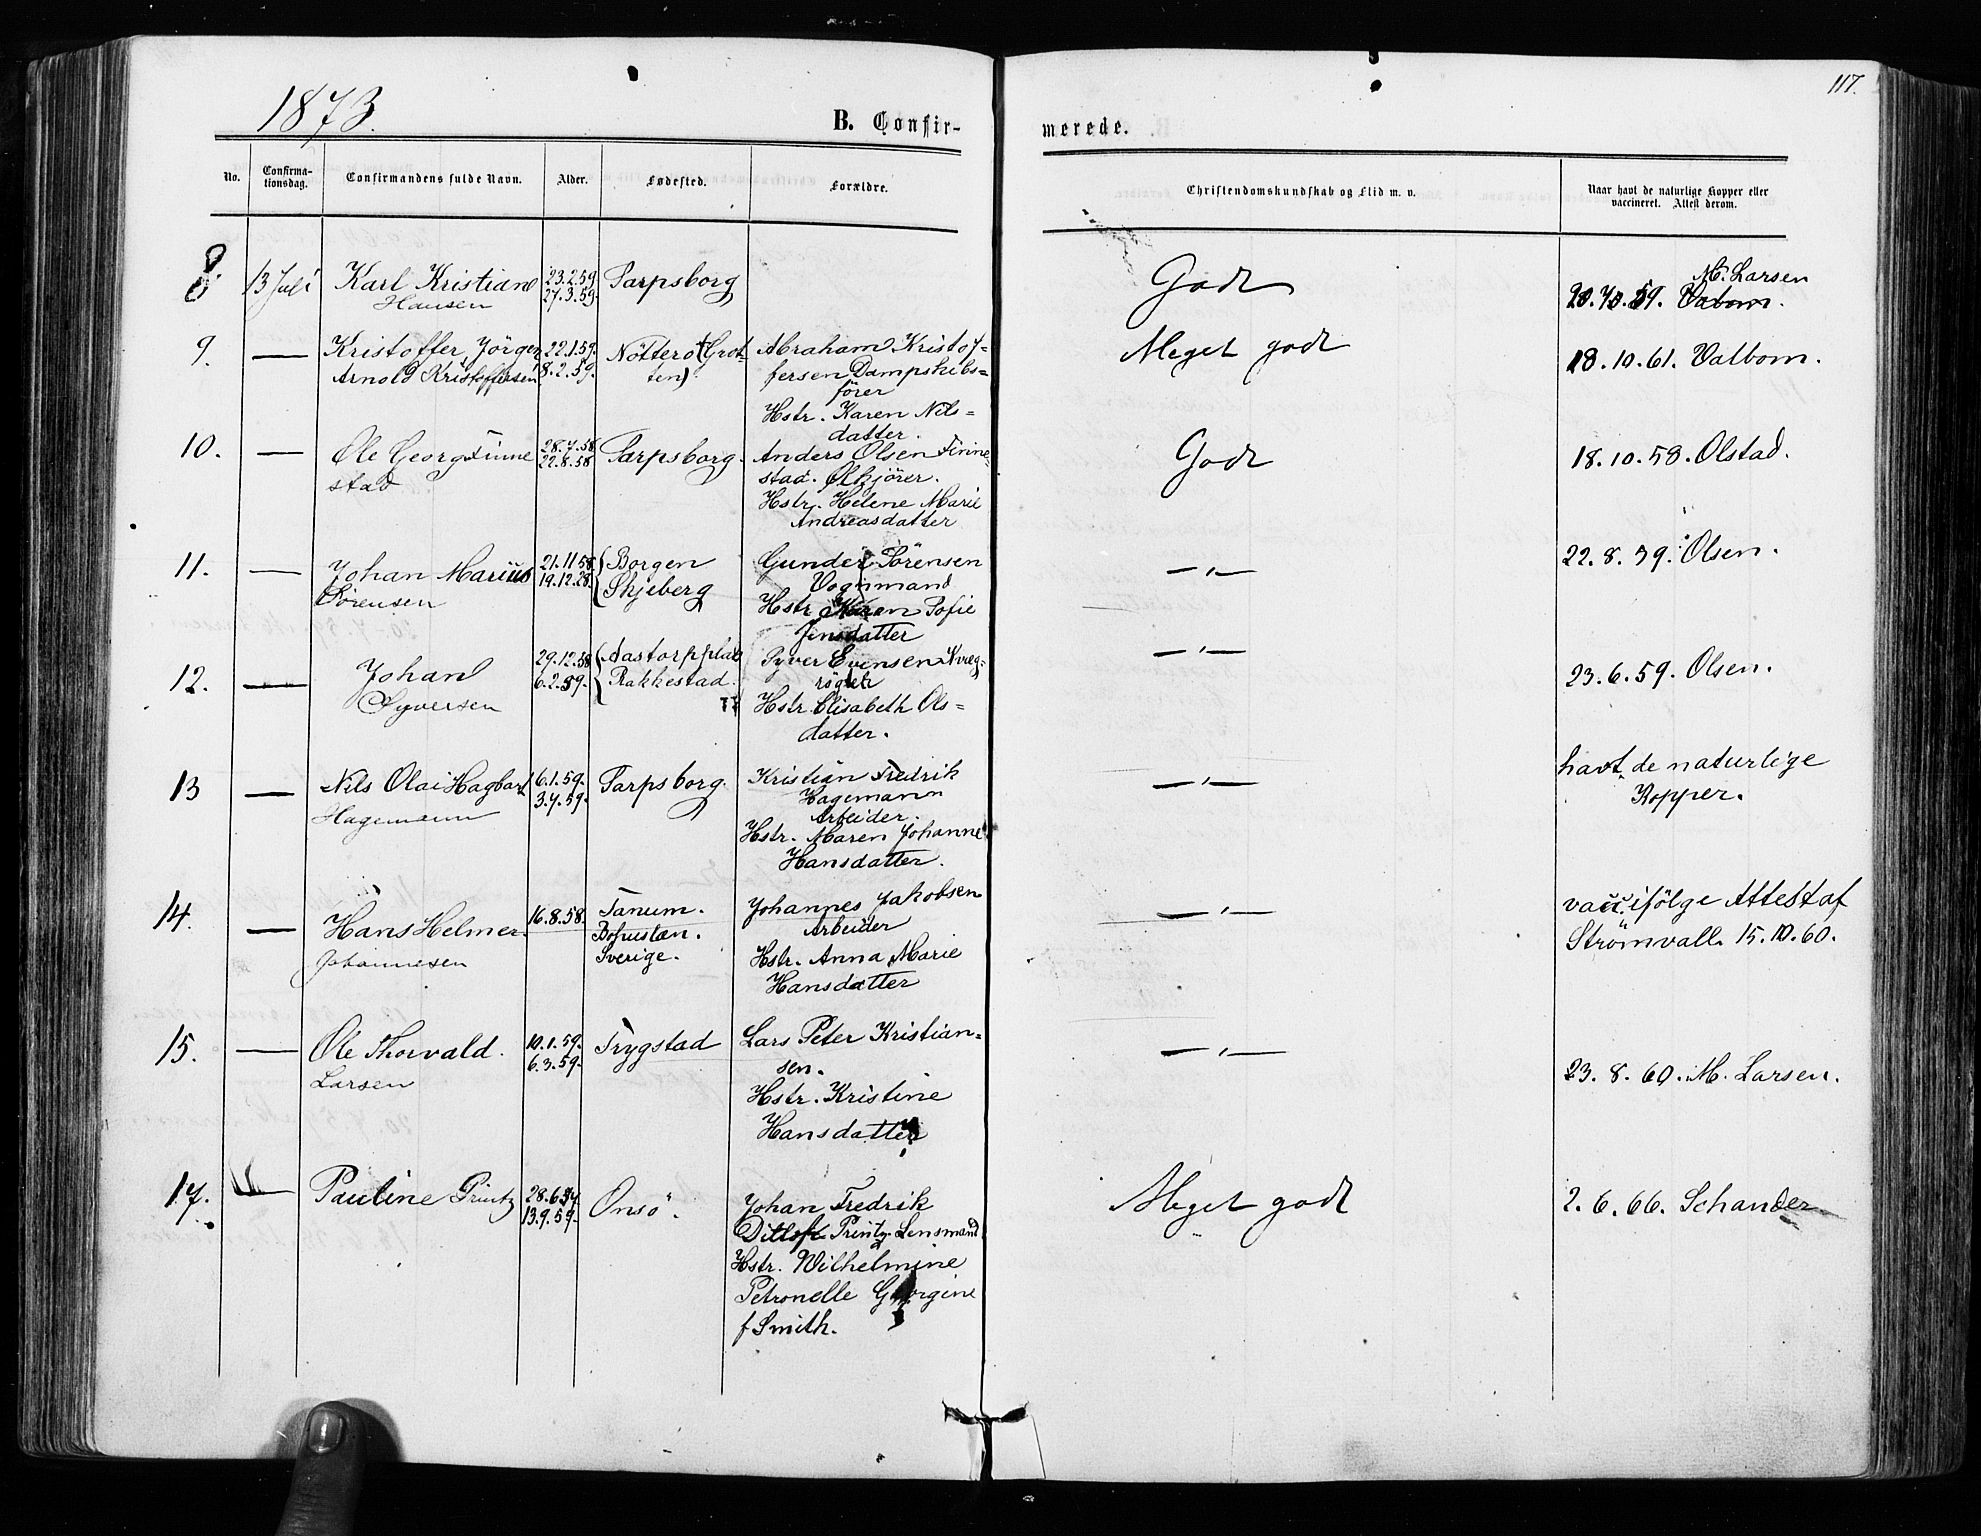 117.
1873.
B. Confir-
merede.
No.
Confirma-
tionsdag.
Confirmandens fulde Navn.
Alder.
Fødested.
Forældre.
Christendomskundskab og Flid m. v.
Naar havt de naturlige Kopper eller
vaccineret. Attest derom.
8 13 Juli Karl Kristian 23.2.59 Sarpsborg Godt M. Larsen
Hansen 27.3.59
9. — Kristoffer Jörgen 22.1.59. Nötterö (Grot- Abraham Kristof- Meget godt 18.10.61. Valbom.
Arnold Kristoffersen 8.2.59. ten) fersen Dampskibs=
förer
Hstr. Karen Nils=
datter.
10. — Ole Georg Finne 28.7.58 Sarpsborg. Anders Olsen Finne= Godt 18.10.58. Olstad.
stad 22.8.58 stad. Ølkjörer.
Hstr. Helene Marie
Andreasdatter
11. — Johan Marius 21.11.58 Borgen Gunder Sörensen — " — 22.8.59. Olsen.
Sørensen 19.12.58. Skjeberg Vognmand
Hstr. Karen Sofie
Jensdatter
12. — Johan 29.12.58 Aastorpplads Syver Evensen Kvæg= — " — 23.6.59. Olsen.
Syversen 6.2.59. Rakkestad. røgter
Hstr. Elisabeth Ols=
datter.
13 — Nils Olai Hagbart 6.1.59. Sarpsborg. Kristian Fredrik — " — havt de naturlige
Hagemann 3.7.59. Hagemann Kopper.
Arbeider.
Hstr. Maren Johanne
Hansdatter.
14. — Hans Helmer 16.8.58. Tanum. Johannes Jakobsen — " — vacc. ifölge Attest af
Johannesen Bohuslan. Arbeider Strömvall. 15.10.60.
Sverige. Hstr. Anna Marie
Hansdatter
15. — Ole Thorvald. 10.1.59. Trygstad Lars Peter Kristian= — " — 23.8.60. M. Larsen.
Larsen 6.3.59. sen.
Hstr. Kristine
Hansdatter
17. — Pauline Printz Onsö. Johan Fredrik Meget godt 2.6.66. Schander
13.9.59. Ditloft Printz. Lensmand
Hstr. Wilhelmine
Petronelle Georgine
f Smith.